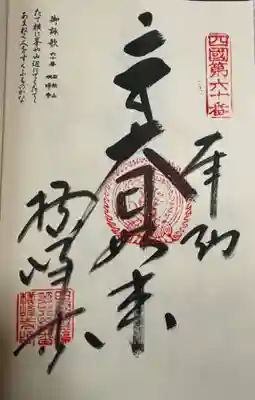 四國第六十番
奉納
大日如来
横峰寺
御詠歌 六十番 石鈇山 横峰寺
たて横に峯や山辺にてらたてて
あまねく人をすくふものかな